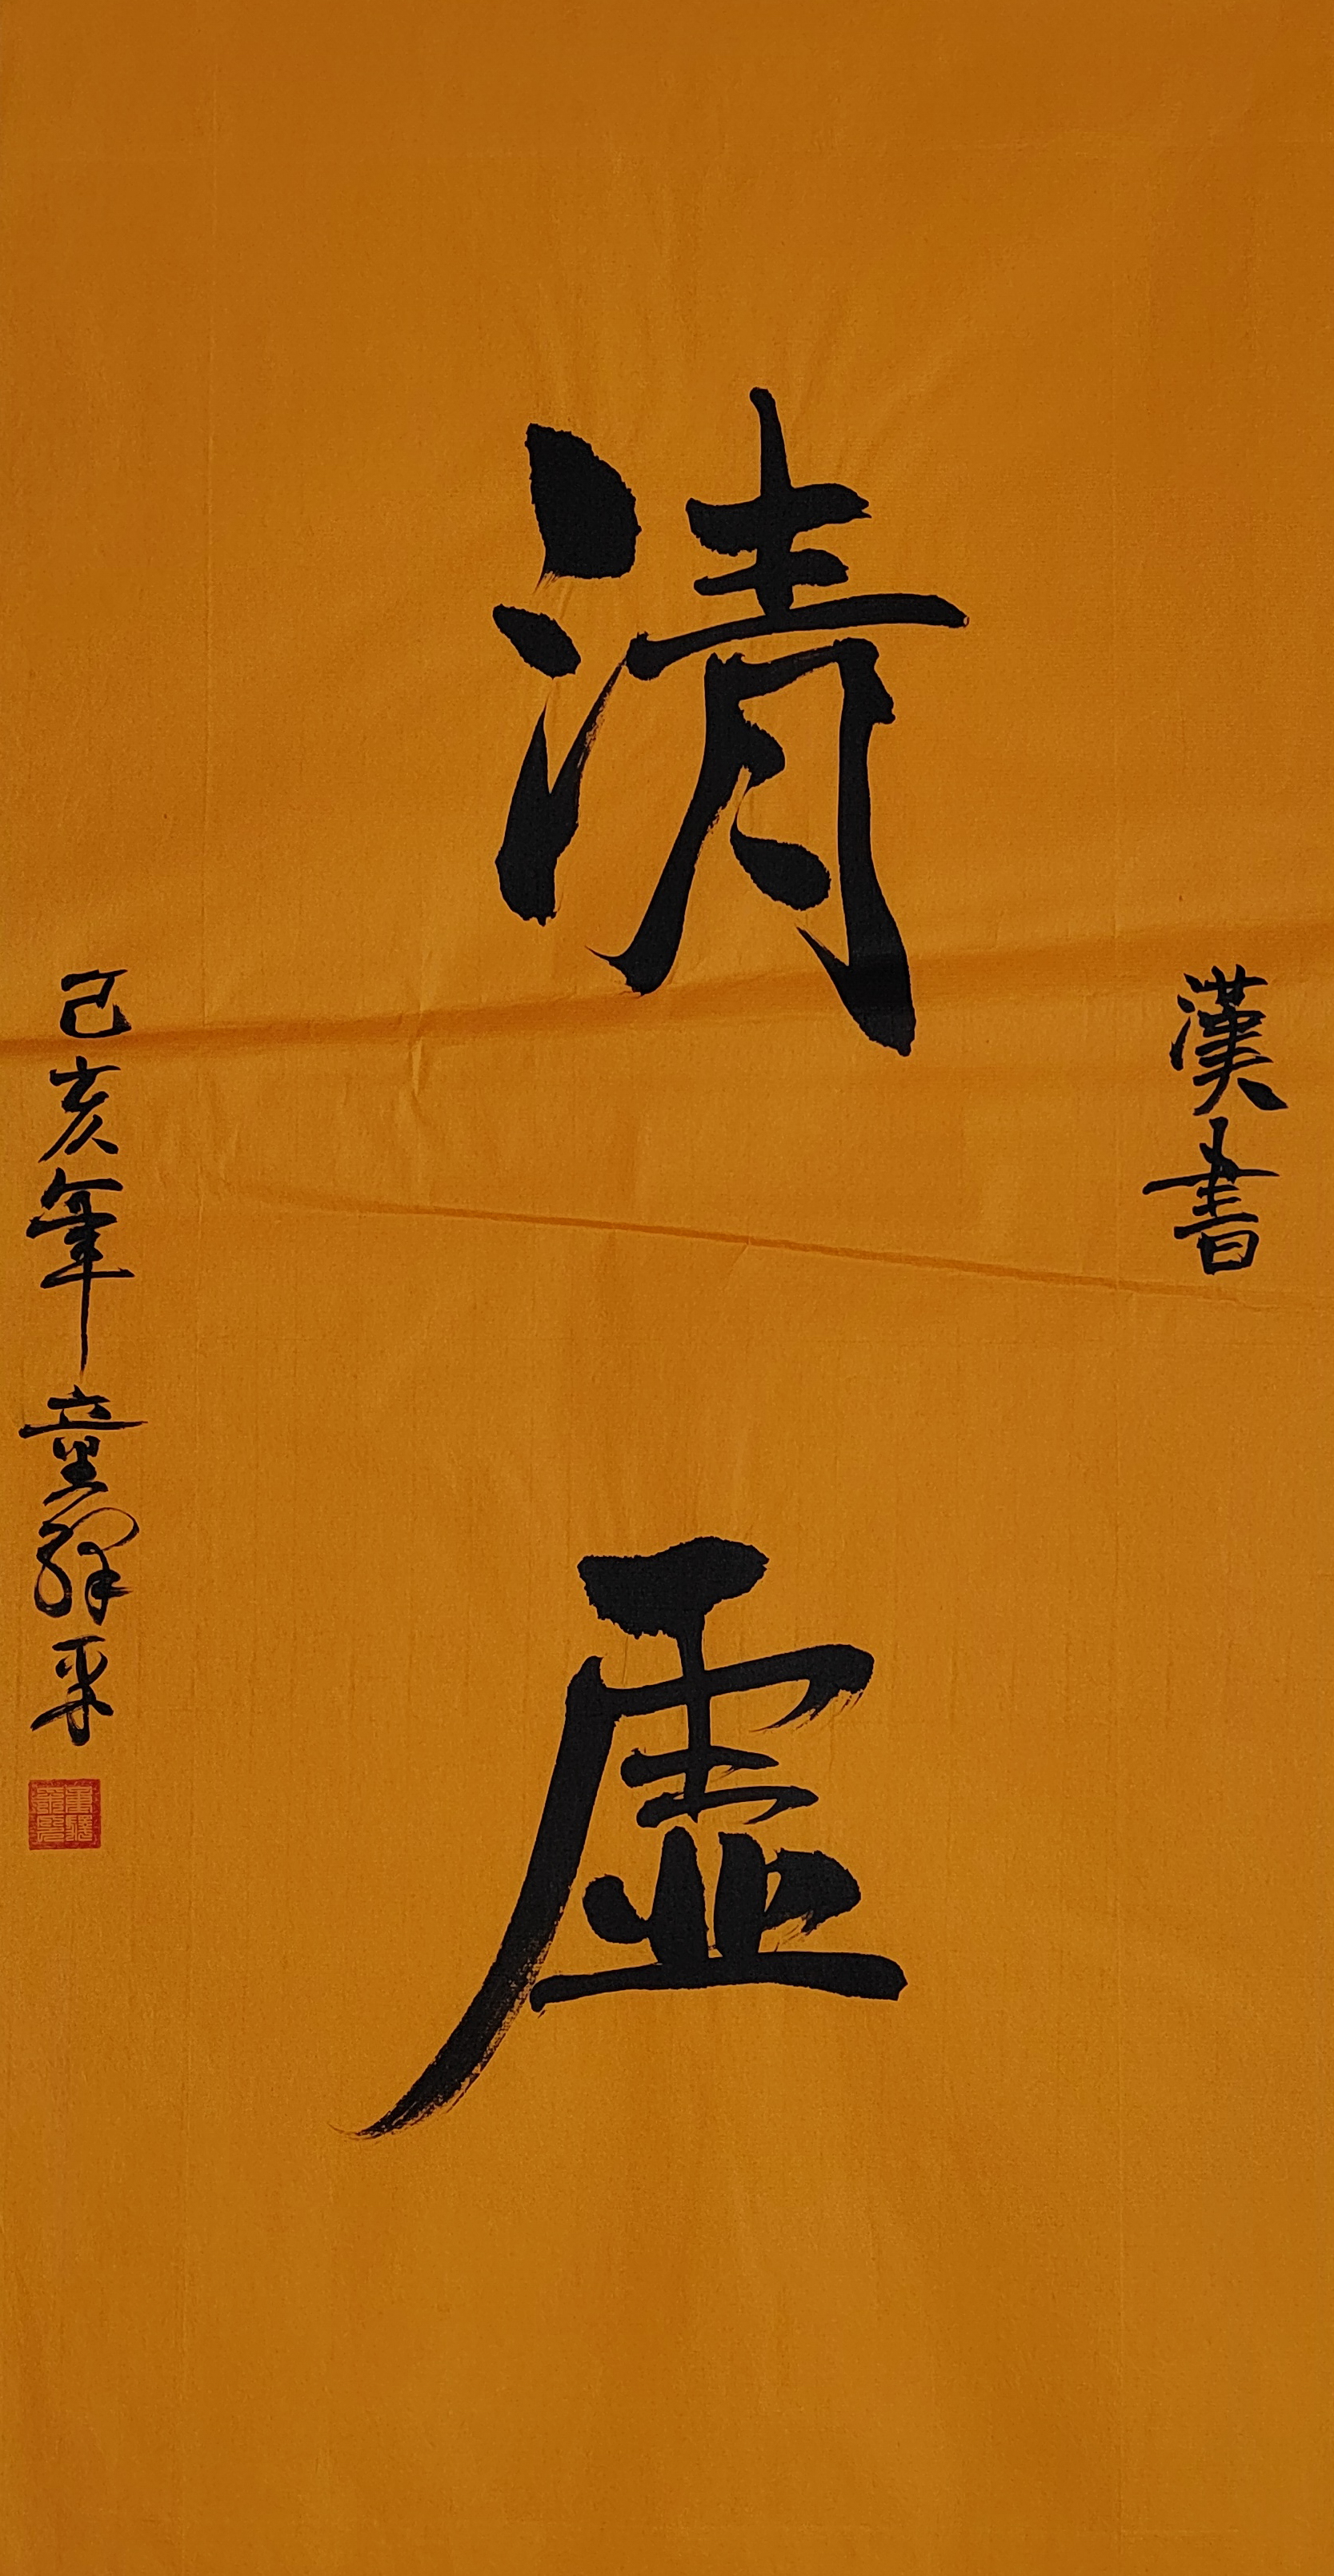 漢書
清虛
己亥年童釋平